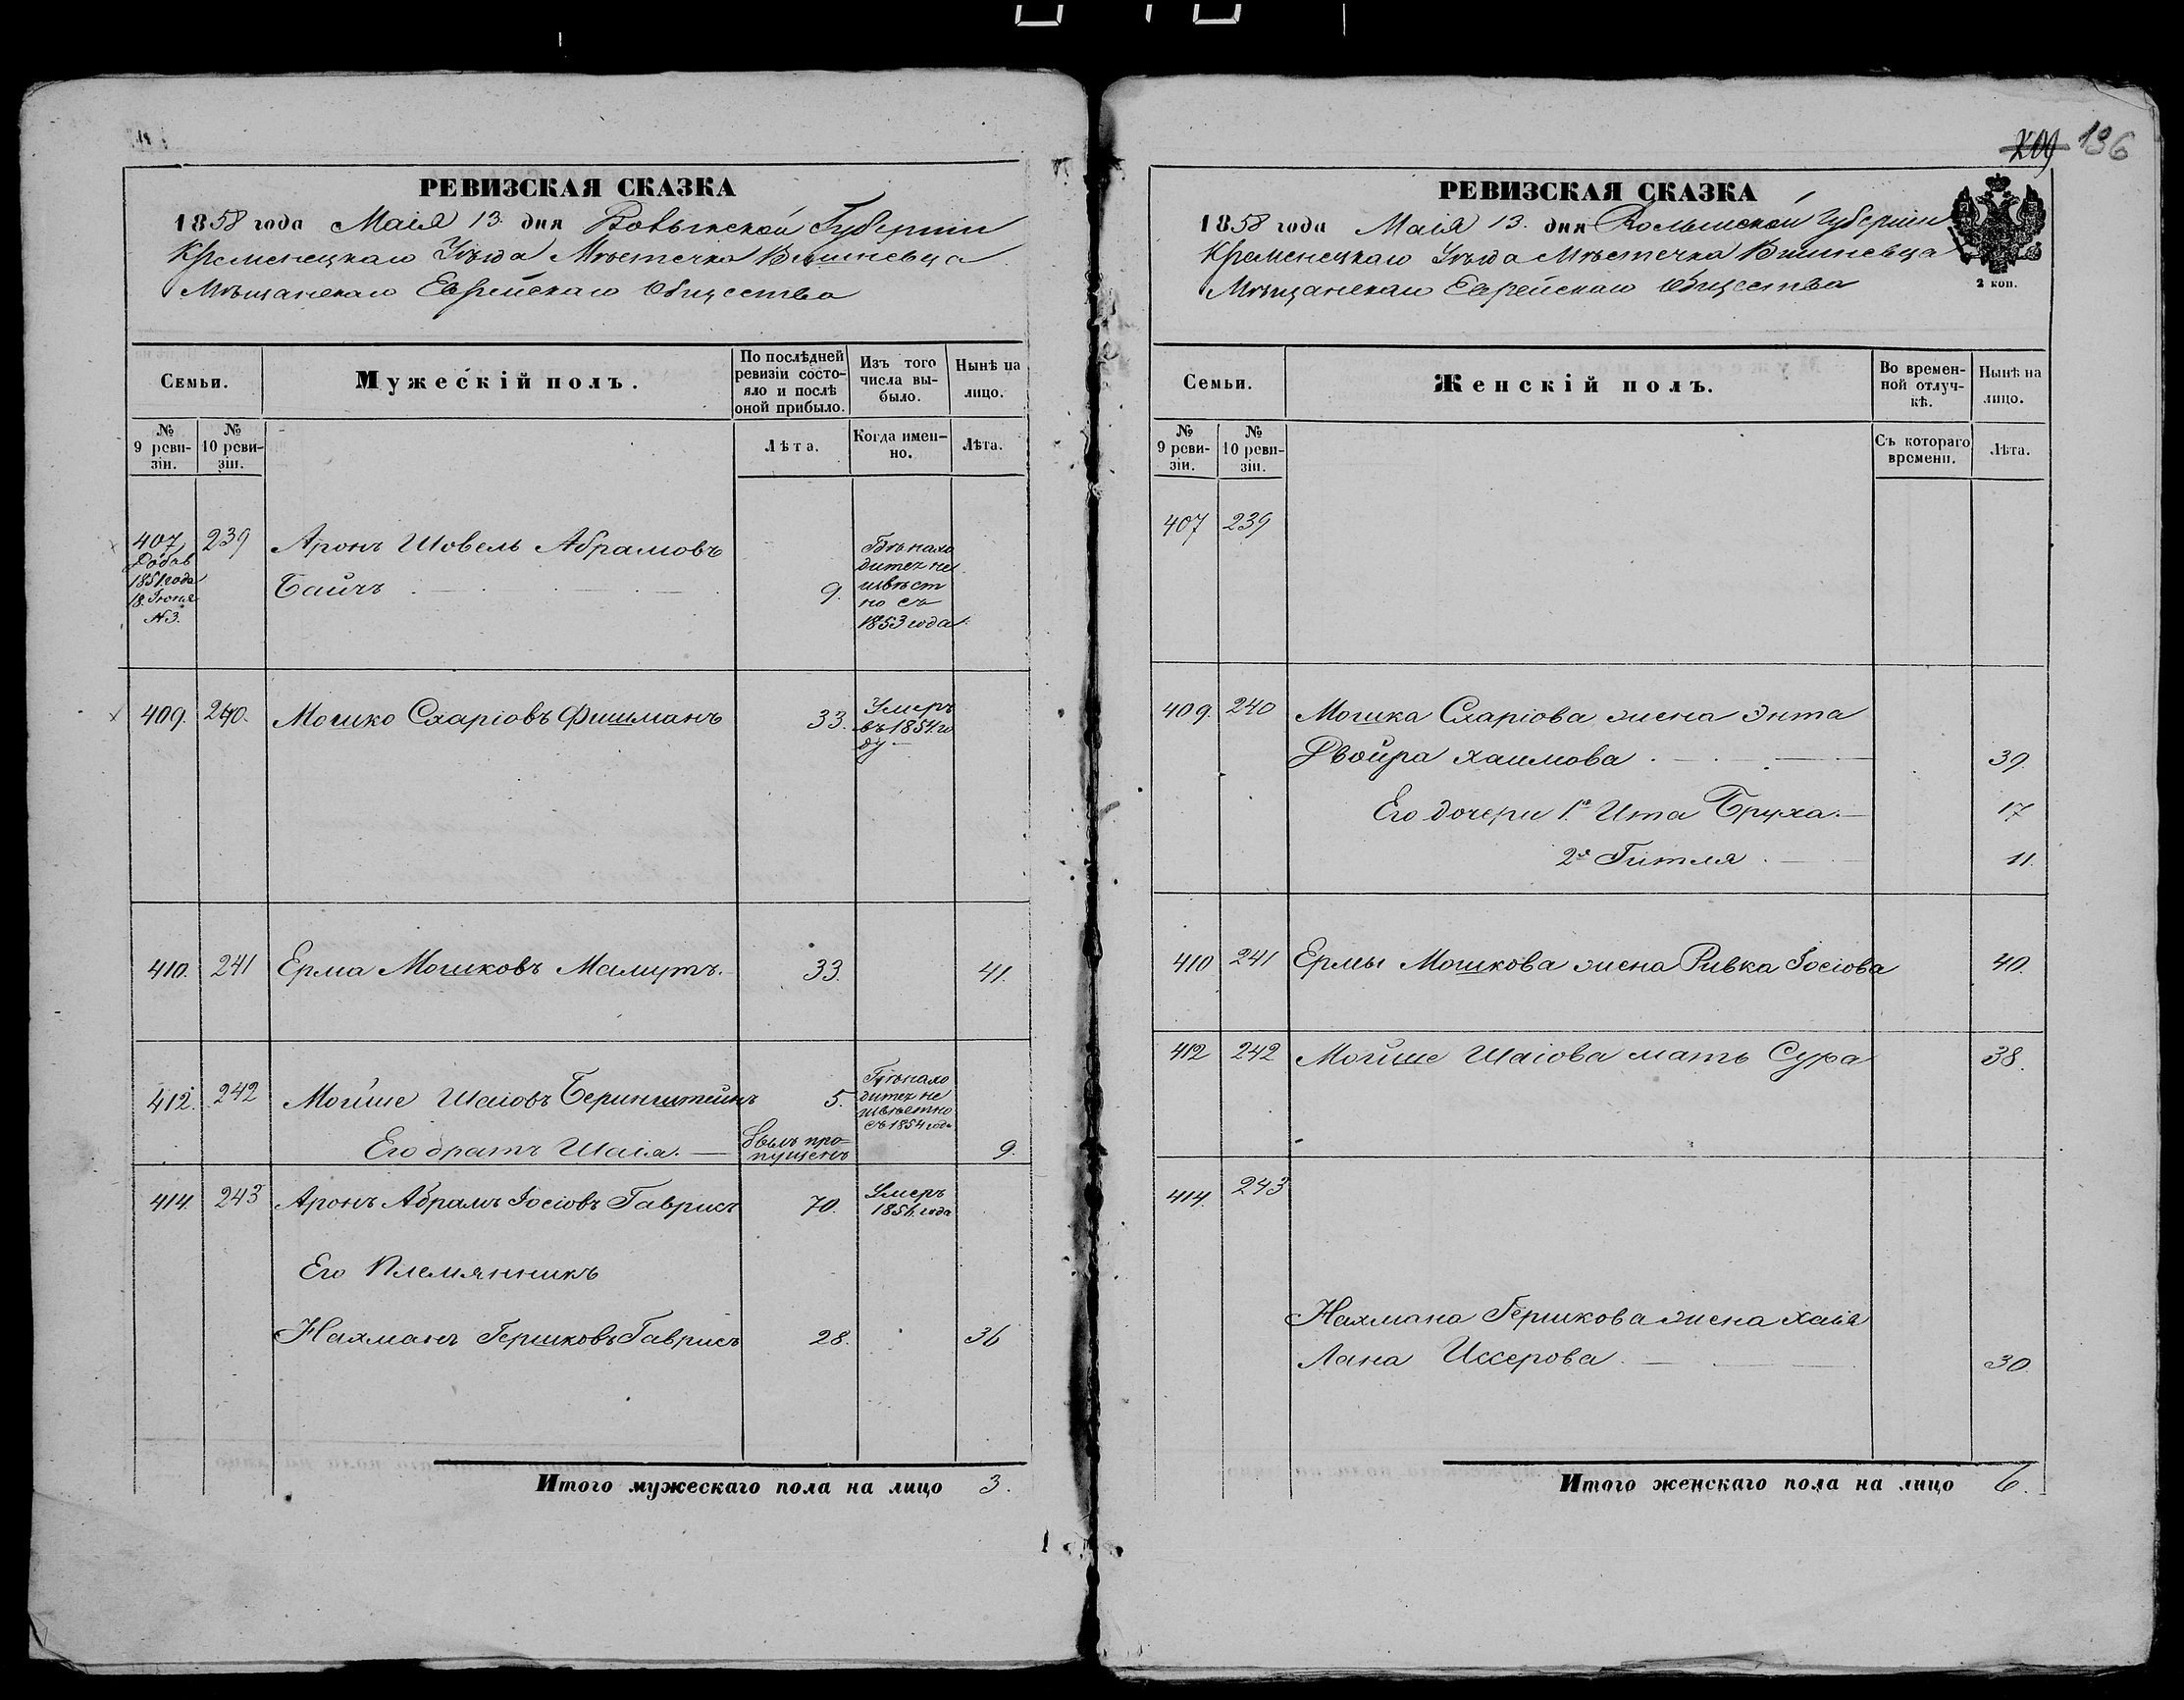 РЕВИЗСКАЯ СКАЗКА
1858 года Маія 13. дня Волынской Губерніи
Кременецкаго Уѣзда Мѣстечка Вишневца
Мѣщанскаго Еврейскаго Общества
Семьи.
Мужескій полъ.
По послѣдней ревизіи состояло и послѣ оной прибыло.
Изъ того числа выбыло.
Нынѣ на лицо.
№ 9 ревизіи.
№ 10 ревизіи.
Лѣта.
Когда именно.
Лѣта.
407 239 Аронъ Шовель Абрамовъ
Добав 1851 года 18 Іюня №3.
Байчъ 9. Гдѣ находитех неизвѣстно съ 1853 года
409. 240. Мошко Схаріовъ Фишманъ 33. Умеръ въ 1854 году
410. 241 Ерма Мошковъ Мамутъ. 33. 41.
412. 242 Мойше Шаіовъ Беринштейнъ 5. Гдѣ находитех неизвѣстно съ 1854 года
Его братъ Шаіа. Былъ пропущенъ 9.
414. 243 Аронъ Абрамъ Іосіовъ Гаврисъ 70. Умеръ 1856 года
Его Племянникъ
Нахманъ Гершковъ Гаврисъ 28. 36
Итого мужескаго пола на лицо 3.
209 136
РЕВИЗСКАЯ СКАЗКА
1858 года Маія 13. дня Волынской Губерніи
Кременецкаго Уѣзда Мѣстечка Вишневца
Мѣщанскаго Еврейскаго Общества
2 коп.
Семьи.
Женскій полъ.
Во временной отлучкѣ.
Нынѣ на лицо.
№ 9 ревизіи.
№ 10 ревизіи.
Съ котораго времени.
Лѣта.
407 239
409. 240 Мошка Схаріова жена Энта
Двойра Хаимова 39.
Его дочери 1я Ита Бруха. 17
2я Гитля 11.
410 241 Ермы Мошкова жена Ривка Іосіова 40.
412 242 Мойше Шаіова мать Сура 38.
414. 243
Нахмана Гершкова жена Хаія
Лана Иссерова 30.
Итого женскаго пола на лицо 6.